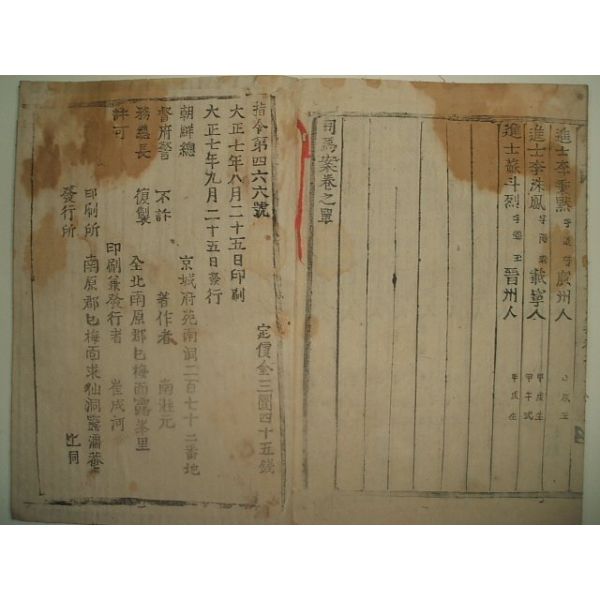 進士李秉黙 字 廣州人
進士李洙鳳 字 載寧人 甲戌生
進士蘇斗烈 字 玉 晉州人 甲戌生
司馬案卷之單
指令第四六六號 定價金三圓四十五錢
大正七年八月二十五日印刷
大正七年九月二十五日發行
朝鮮總 京城府苑南洞二百七十二番地
督府警 不許 著作者 南廷元
務總長 復製 全北南原郡巳梅面露峯里
許可 印刷兼發行者 崔成河
印刷所 南原郡巳梅面來仙洞靈潘菴
發行所 上同